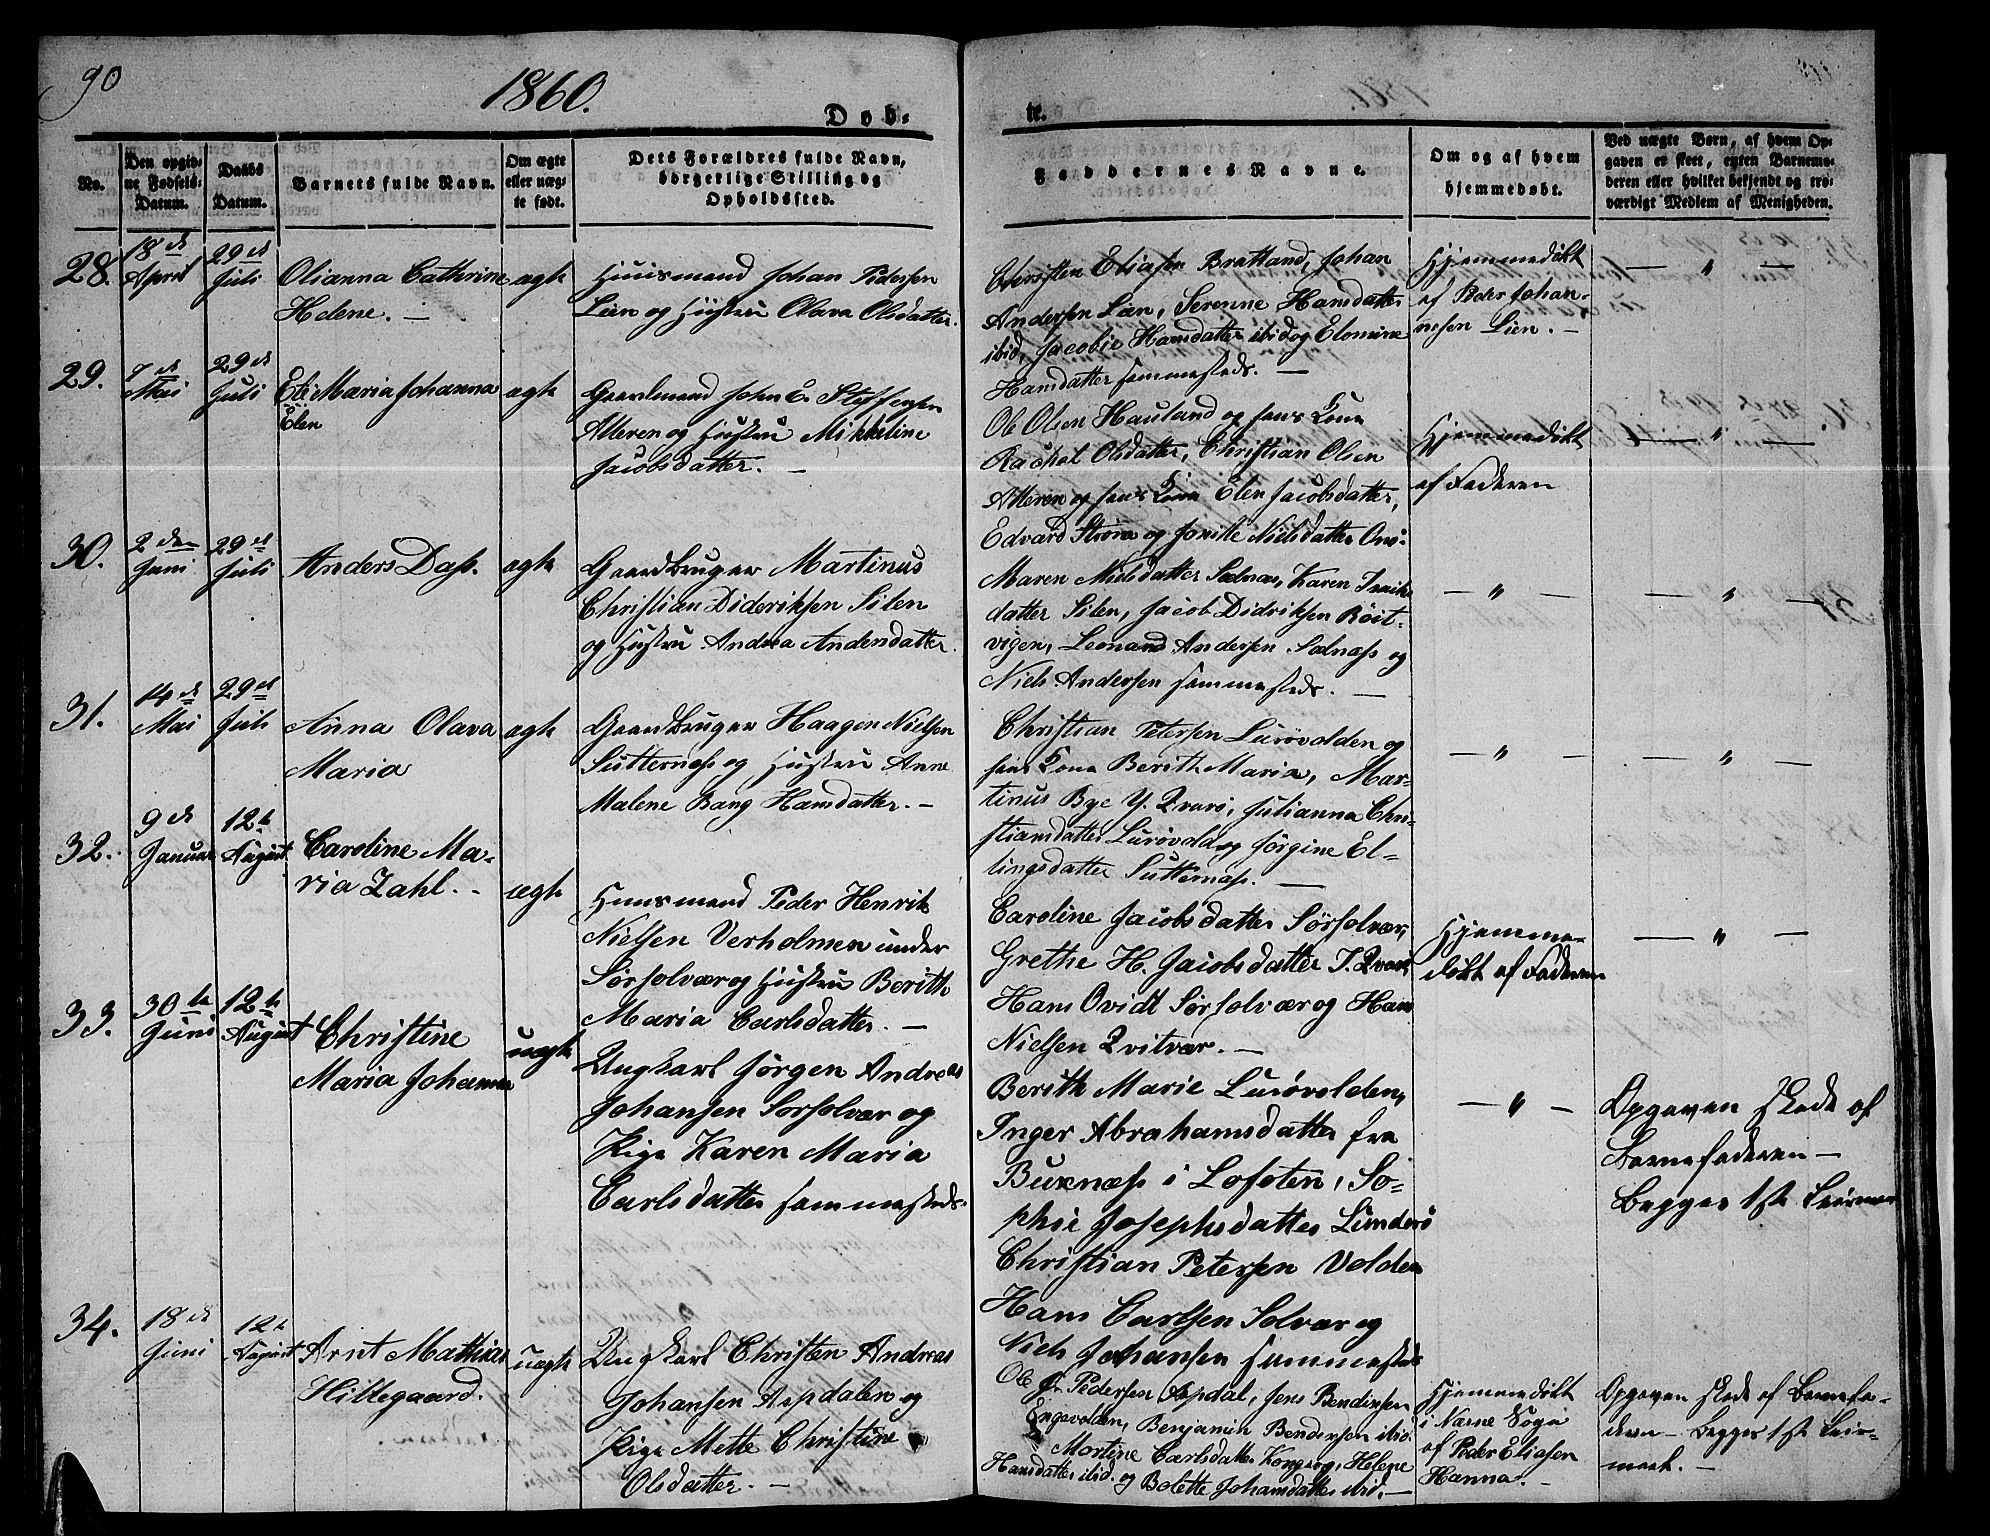 90
1860.
Døb-
te.
No.
Den opgiv-
ne Fødsels-
Datum.
Daabs
Datum.
Barnets fulde Navn.
Om ægte
eller uæg-
te født.
Dets Forældres fulde Navn,
borgerlige Stilling og
Opholdssted.
Faddernes Navne.
Om og af hvem
hjemmedøbt.
Ved uægte Børn, af hvem Op-
gaven er skeet, enten Barnemo-
deren eller hvilket bekjendt og tro-
værdigt Medlem af Menigheden.
28.
18de
April
29de
Juli
Olianna Cathrine
Helene. -
ægte
Huusmand Johan Pedersen
Lien og Hustru Olava Olsdatter.
Christen Eliassen Bratland, Johan
Andersen Lien, Serenne Hansdatter
ibid, Jacobie Hansdatter ibid og Elomine
Hansdatter sammesteds. -
Hjemmedøbt
af Peder Johan-
nesen Lien. -
— " —
29.
7de
Mai
29de
Juli
Eli Maria Johanna
Elen
ægte
Gaardmand John E. Steffensen
Alteren og Hustru Mikkeline
Jacobsdatter. -
Ole Olsen Hauland og hans Kone
Rachel Olsdatter, Christian Olsen
Alteren og hans Kone Elen Jacobsdatter,
Edvard Strøm og Jonille Nielsdatter
Hjemmedøbt
af Faderen
— " —
30.
2den
Juni
29de
Juli
Anders Dass.
ægte
Gaardbruger Martinus
Christian Dideriksen Silen
og Hustru Andrea Andersdatter.
Maren Nielsdatter Selnæs, Karen
datter Silen, Jacob Didriksen Røit-
vigen, Leonard Andersen Selnæss og
Niels Andersen sammesteds. -
— " —
— " —
31.
14de
Mai
29de
Juli
Anna Olava
Maria
ægte
Gaardbruger Haagen Nielsen
Sutternæs og Hustru Anne
Malene Bang Hansdatter. -
Christian Petersen Lurøvolden og
hans Kone Berith Maria, Mar-
tinus Bye Y. Qvarø, Julianna Chri-
stiansdatter Lurøvold og Jørgine El-
lingsdatter Sutternæs. -
— " —
— " —
32.
9de
Januar
12te
August
Caroline Ma-
ria Zahl. -
ægte
Huusmand Peder Henrik
Nielsen Verholmen under
Sørsolvær og Hustru Berith
Maria Carlsdatter. -
Caroline Jacobsdatter Sørsolvær,
Grethe H. Jacobsdatter I. Qvarø,
Hans Ovidt Sørsolvær og Hans
Nielsen Qvitvær. -
Hjemme-
døbt af Faderen
— " —
33.
30te
Juni
12te
August
Christine
Maria Johanna
uægte
Ungkarl Jørgen Andreas
Johansen Sørsolvær og
Pige Karen Maria
Carlsdatter sammesteds.
Berith Marie Lurøvolden,
Inger Abrahamsdatter fra
Buxnæss i Lofoten, So-
phie Josephsdatter Lunderø
Christian Petersen Volden
Hans Carlsen Solvær og
Niels Johansen sammesteds
— " —
Opgaven skede af
Barnefaderen -
Begges 1ste Leierm
34.
18de
Juni
12te
August
Arnt Mathias
Hillegaard.
uægte
Ungkarl Christen Andreas
Johansen Aspdalen og
Pige Mette Christine
Olsdatter. -
Ole Jr. Pedersen Aspdal, Jens Bendixsen
Engevolden, Benjamin Bendixsen ibid.
Mortine Carlsdatter Kongsog, Helene
Hansdatter ibid. og Bolette Johansdatter ibid. -
Hjemmedøbt
i Nærne Sogn
af Peder Eliasen
Hanna. -
Opgaven skede af Barnefa-
deren - Begges 1ste Leier-
maal. -